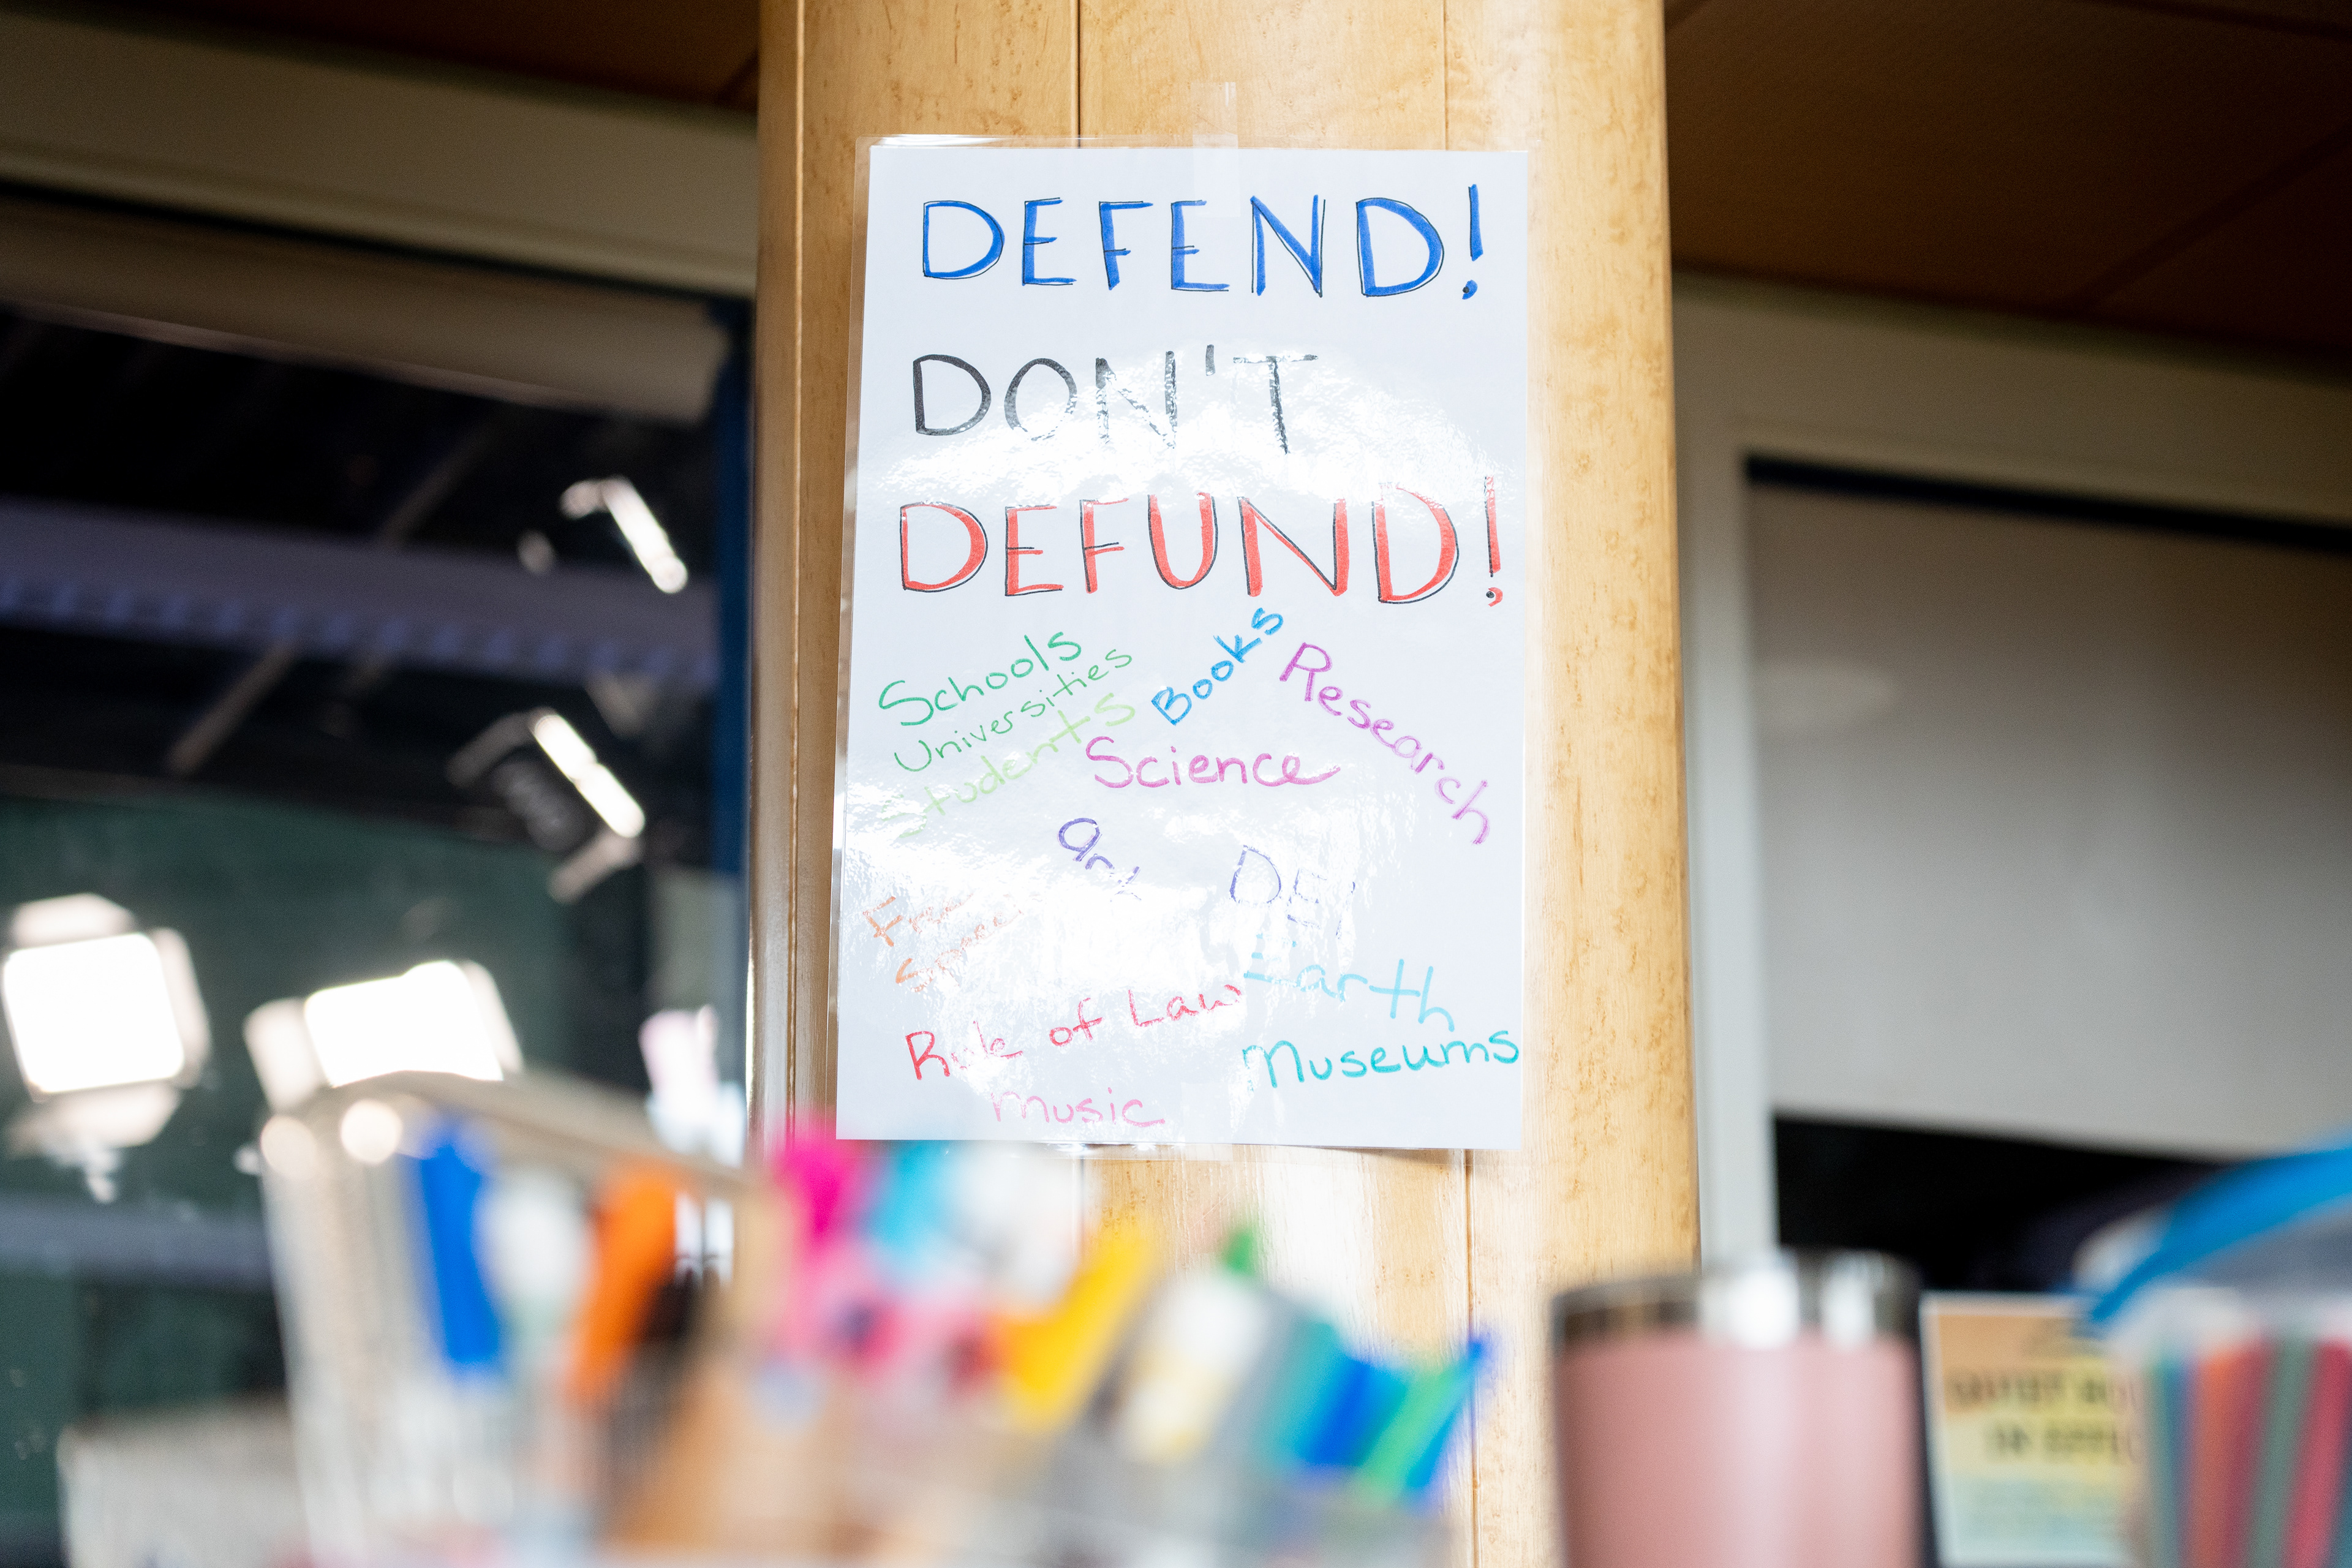 DEFEND!
DON'T
DEFUND!
Schools
Universities
Students
Books
Research
Science
art
DEI
Free
Speech
Earth
Rule of Law
Museums
music